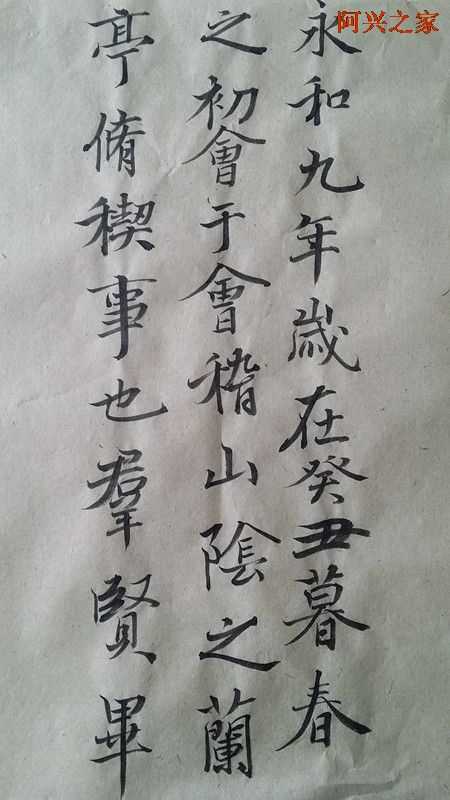 阿兴之家
永和九年歲在癸丑暮春
之初會于會稽山陰之蘭
亭脩稧事也羣賢畢